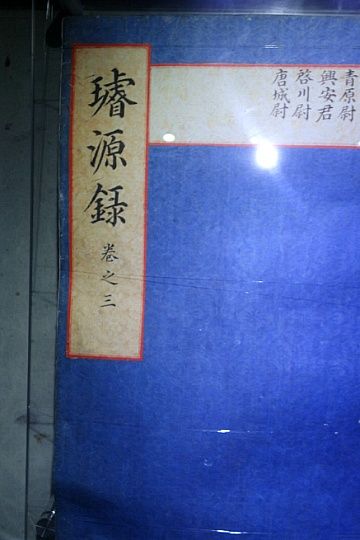 璿源錄 卷之三
青原尉
興安君
啓川尉
唐城尉